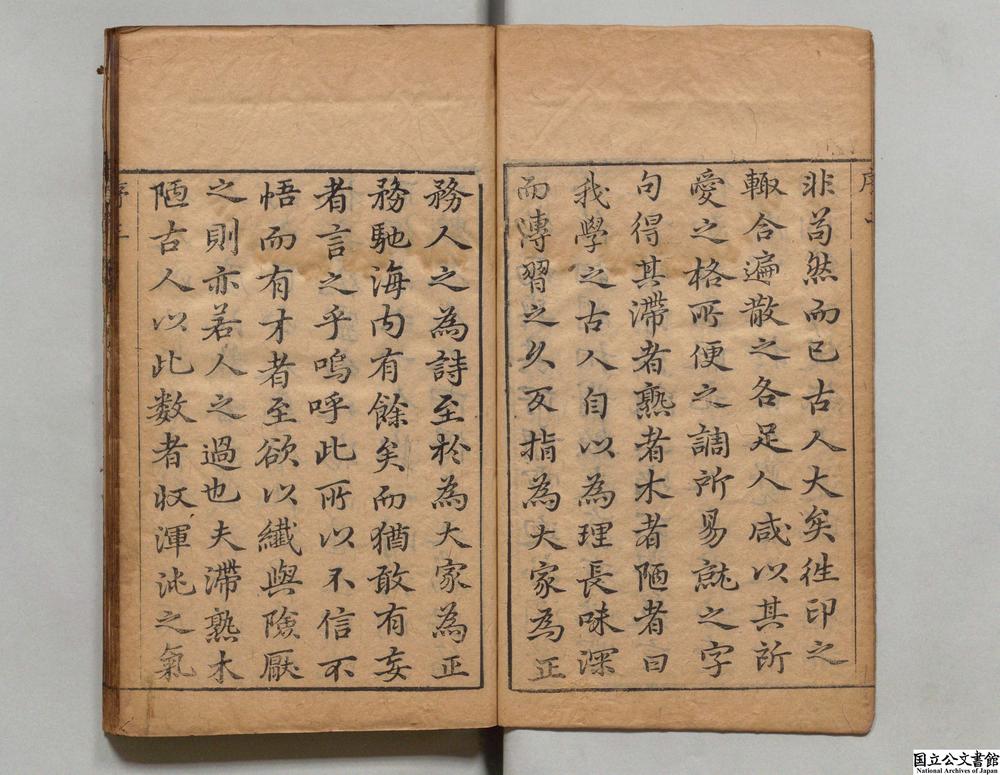 非苟然而已古人大矣徃印之
輙合遍散之各足人咸以其所
愛之格所便之調所易就之字
句得其滞者熟者木者陋者曰
我學之古人自以為理長味深
而傳習之久反指為大家為正
務人之為詩至於為大家為正
務馳海内有餘矣而猶敢有妄
者言之乎嗚呼此所以不信不
悟而有才者至欲以纖與險厭
之則亦若人之過也夫滞熟木
陋古人以此数者収渾沌之氣
序
国立公文書館
National Archives of Japan